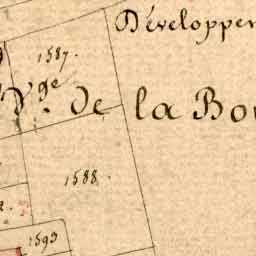 Développe
1587.
Vge. De la Bo
1588.
1593